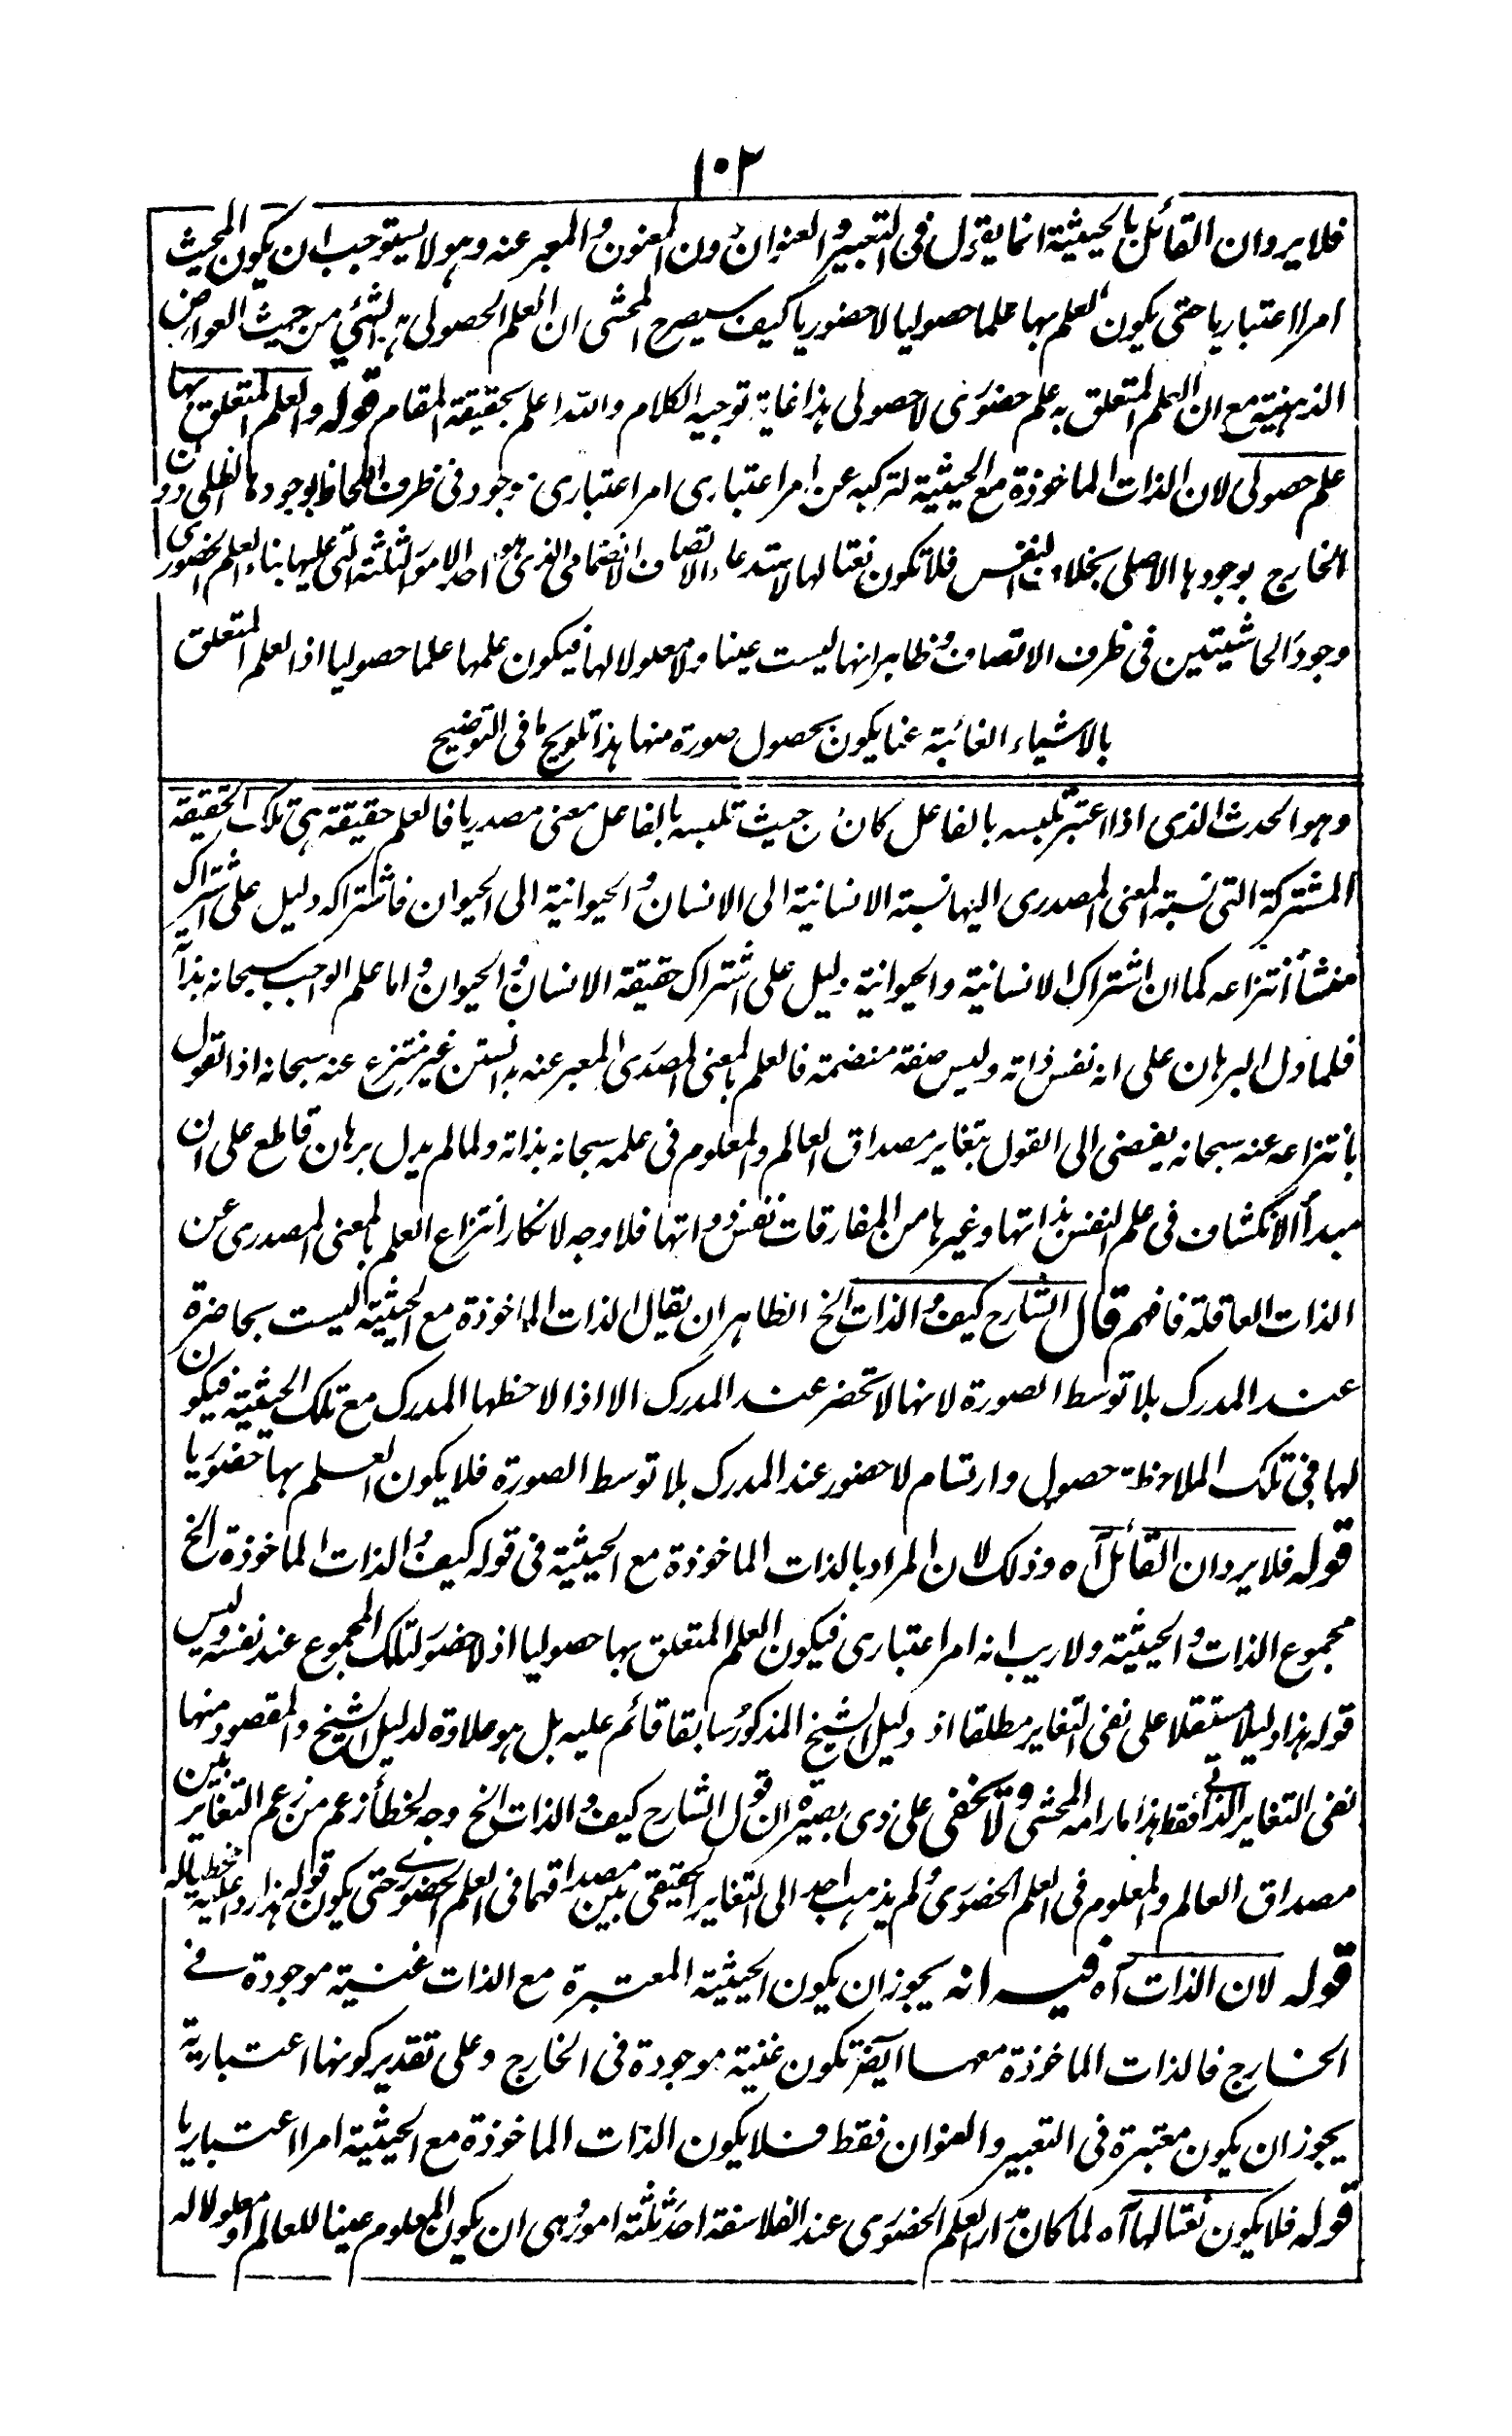 ١٠٢
فلا يرد ان القائل بالحيثية انما يقول فى التعبير والعنوان دون المعنون والمعبر عنه وهو لا يستوجب ان يكون المحيث
امرا اعتباريا حتى يكون العلم بها علما حصوليا لا حضوريا كيف سيصرح المحشى ان العلم الحصولى هو الشئ من حيث العوارض
الذهنية مع ان العلم المتعلق به علم حضورى لا حصولى هذا غاية توجيه الكلام والله اعلم بحقيقة المقام قوله والعلم المتعلق بها
علم حصولى لان الذات الماخوذة مع الحيثية لتركبه عن امر اعتبارى امر اعتبارى موجود فى ظرف اللحاظ بوجودها الظلى دون
الخارج بوجودها الاصلى بخلاف النفس فلا تكون نعتا لها لاستدعاء الاتصاف الانضمامى الذى هو احد الامور الثلثة التى عليها بناء العلم الحضورى
وجود الحاشيتين فى ظرف الاتصاف وظاهر انها ليست عينا ولا معلولا لها فيكون علمها علما حصوليا اذ العلم المتعلق
بالاشياء الغائبة عنا يكون بحصول صورة منها هذا تلويح ما فى التوضيح
وهو الحدث الذى اذا اعتبر تلبسه بالفاعل كان من حيث تلبسه بالفاعل معنى مصدريا فالعلم حقيقة هى تلك الحقيقة
المشتركة التى نسبة المعنى المصدرى اليها نسبة الانسانية الى الانسان والحيوانية الى الحيوان فاشتراكه دليل على اشتراك
منشأ انتزاعه كما ان اشتراك الانسانية والحيوانية دليل على اشتراك حقيقة الانسان والحيوان واما علم الواجب سبحانه بذاته
فلما دل البرهان على انه نفس ذاته وليس صفة منضمة فالعلم بالمعنى المصدرى المعبر عنه بدانستن غير منتزع عنه سبحانه اذ القول
بانتزاعه عنه سبحانه يفضى الى القول بتغاير مصداق العالم والمعلوم فى علمه سبحانه بذاته ولما لم يدل برهان قاطع على ان
مبدأ الانكشاف فى علم النفس بذاتها وغيرها من المفارقات نفس ذواتها فلا وجه لانكار انتزاع العلم بالمعنى المصدرى عن
الذات العاقلة فافهم قال الشارح كيف والذات الخ الظاهر ان يقال الذات الماخوذة مع الحيثية ليست بحاضرة
عند المدرك بلا توسط الصورة لانها لا تحضر عند المدرك الا اذا لاحظها المدرك مع تلك الحيثية فيكون
لها فى تلك الملاحظة حصول وارتسام لا حضور عند المدرك بلا توسط الصورة فلا يكون العلم بها حضوريا
قوله فلا يرد ان القائل آه وذلك لان المراد بالذات الماخوذة مع الحيثية فى قوله كيف والذات الماخوذة الخ
مجموع الذات والحيثية ولا ريب انه امر اعتبارى فيكون العلم المتعلق بها حصوليا اذ لا حضور لتلك المجموع عند نفسه وليس
قوله هذا دليلا مستقلا على نفى التغاير مطلقا اذ دليل الشيخ المذكور سابقا قائم عليه بل هو علاوة لدليل الشيخ والمقصود منها
نفى التغاير الذاتى فقط هذا ما رامه المحشى ولا يخفى على ذى بصيرة ان قول الشارح كيف والذات الخ وجه لخطأ زعم من زعم التغاير بين
مصداق العالم والمعلوم فى العلم الحضورى ولم يذهب احد الى التغاير الحقيقى بين مصداقهما فى العلم الحضورى حتى يكون قوله هذا ردا عليه وتخطية له
قوله لان الذات آه فيه انه يجوز ان يكون الحيثية المعتبرة مع الذات عينية موجودة فى
الخارج فالذات الماخوذة معها ايضا تكون عينية موجودة فى الخارج وعلى تقدير كونها اعتبارية
يجوز ان يكون معتبرة فى التعبير والعنوان فقط فلا يكون الذات الماخوذة مع الحيثية امرا اعتباريا
قوله فلا يكون نعتا لها آه لما كان مدار العلم الحضورى عند الفلاسفة احد ثلثة امور هى ان يكون المعلوم عينا للعالم او معلولا له